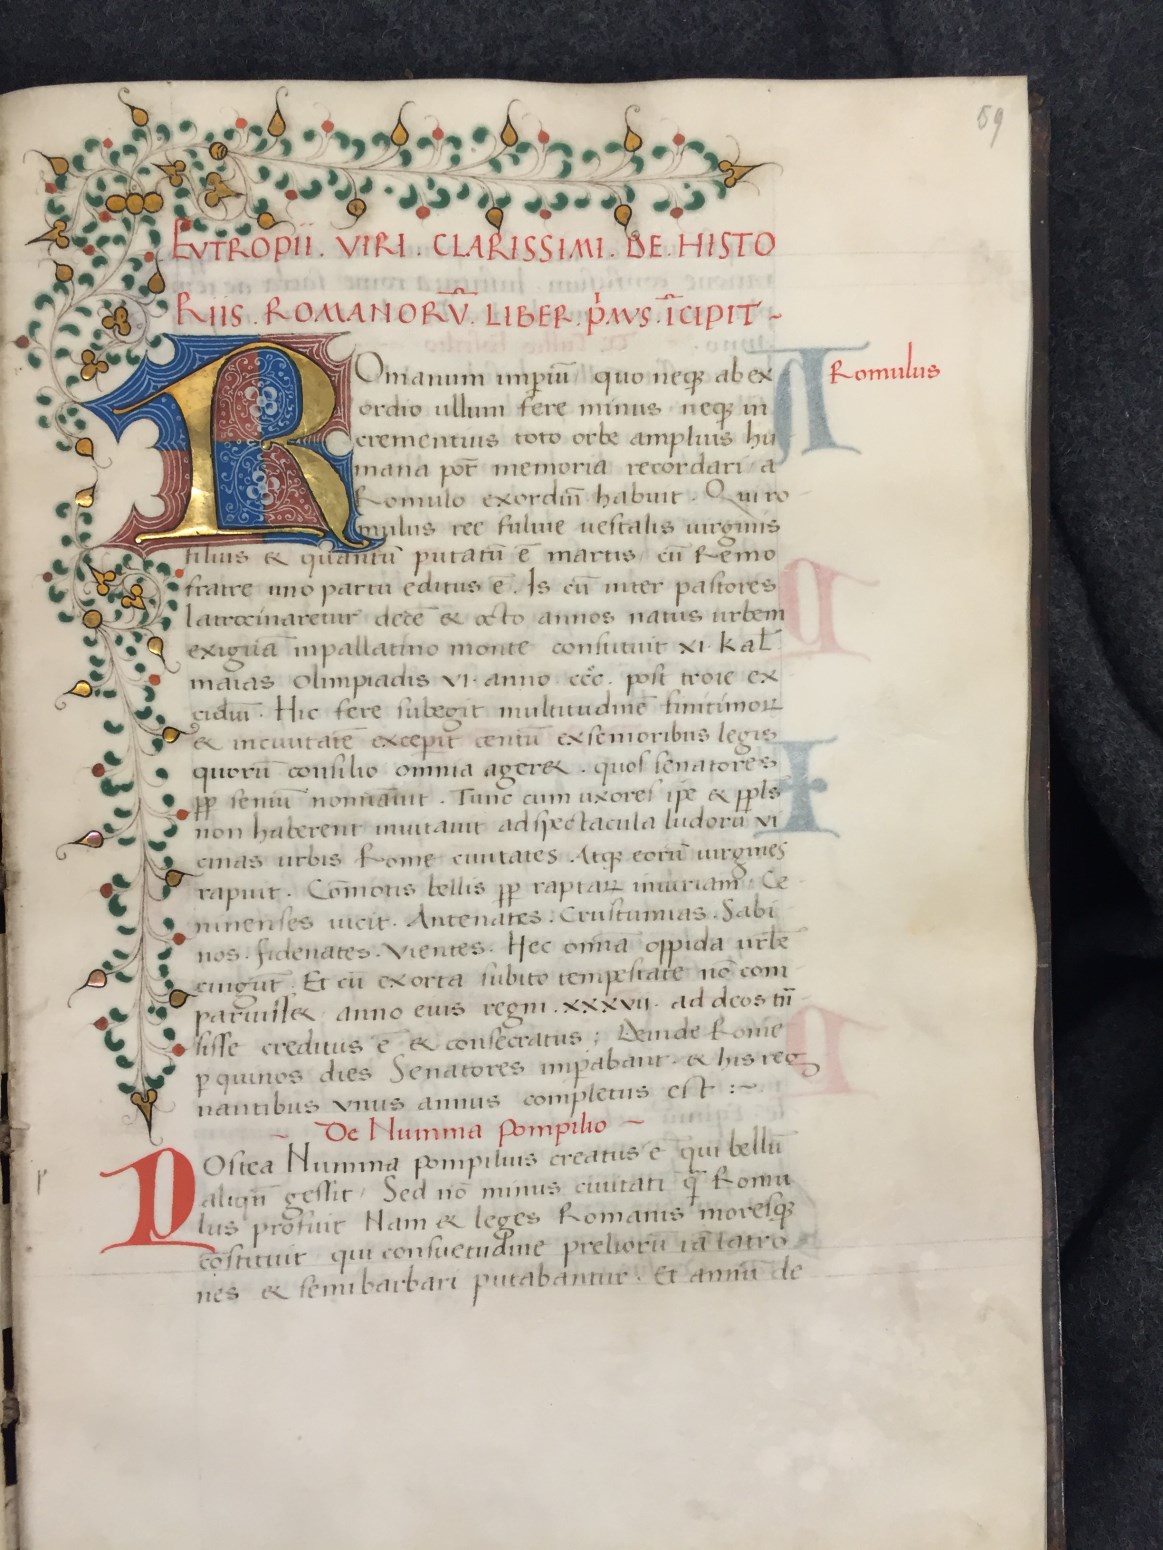 59
EVTROPII . VIRI . CLARISSIMI . DE . HISTO
RIIS . ROMANORV̄ . LIBER . P̍MVS . ĪCIPIT ~
Romulus
ROmanum impiū quo neqꝫ ab ex
ordio ullum fere minus neqꝫ in
crementius toto orbe amplius hu
mana pot̄ memoria recordari a
Romulo exordiū habuit . Qui ro
mulus ree siluie uestalis uirginis
filius & quantū putatū ē martis cū Remo
fratre uno partu editus ē . Is cū inter pastores
latrocinaretur decē & octo annos natus urbem
exiguā inpallatino monte constituit xi kal̄
maias olimpiadis vi anno ccc̄ . post troie ex
cidiū . Hic fere subegit multitudinē finitimoꝝ
& inciuitatē excepit centū exsenioribus legis
quorū consilio omnia ager& . quos senatores
ꝓꝑ seniū noīauit . Tunc cum uxores ip̄e & ppl̄s
non haberent inuitauit adspectacula ludorū vi
cinas urbis Rome ciuitates . Atqꝫ eorū uirgines
rapuit . Cōmotis bellis ꝓꝑ raptaꝝ iniuriam . Ce
ninenses uicit . Antenates . Crustumias . Sabi
nos . fidenates . Vientes . Hec omīa oppida urbē
cingūt . Et cū exorta subito tempestate nō com
paruiss& anno eius regni . xxxvii . ad deos trī
sisse creditus ē & consecratus ; Deinde Rome
ꝑ quinos dies Senatores imꝑabant . & his reg
nantibus vnus annus completus est :~
~ De Numma pompilio ~
p
POstea Numma pompilius creatus ē qui bellū
aliqd̄ gessit / Sed nō minus ciuitati q̄ Romu
lus profuit Nam & leges Romanis moresqꝫ
cōstituit qui consuetudine preliorū iā latro
nes & semibarbari putabantur . Et annū de